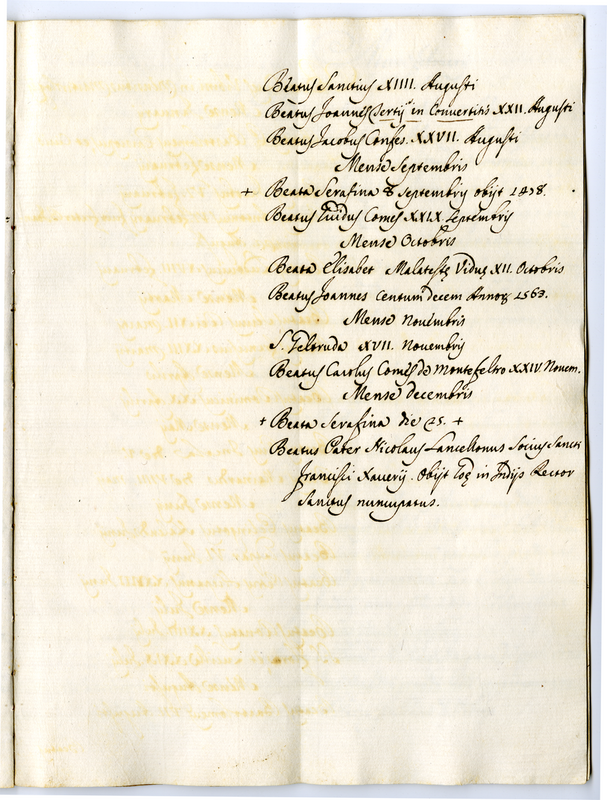 Beatus Sanctius XIIII. Augusti
Beatus Joannes in Convertitis XXII. Augusti
Beatus Jacobus Confes. XXVII. Augusti
Mense Septembris
+ Beata Serafina 8 Septembris obijt 1478.
Beatus Guidus Comes XXIX Septembris
Mense Octobris
Beata Elisabet Malatestę Viduę XII. Octobris
Beatus Joannes Centum decem Annoꝝ 1563.
Mense Novembris
S. Geltruda XVII. Novembris
Beatus Carolus Comes de Montefeltro XXIV Novem.
Mense decembris
+ Beata Serafina die 25. +
Beatus Pater Nicolaus Lancellonus Socius Sancti
Francisci Xaverij. Obijt in Indijs Rector
Sanctus nuncupatus.